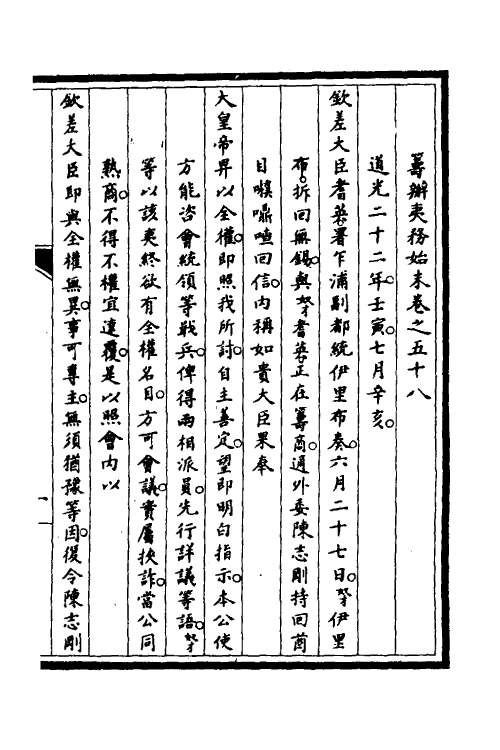 籌辦夷務始末卷之五十八
道光二十二年。壬寅。七月辛亥。
欽差大臣耆英署乍浦副都統伊里布奏。六月二十七日。奴才伊里
布。拆回無錫。與奴才耆英正在籌商。適外委陳志剛持回酋
目嘆㗣喳回信。內稱如貴大臣果奉
大皇帝畀以全權。即照我所討。自主善定。望即明白指示。本公使
方能咨會統領等戢兵。俾得兩相派員。先行詳議等語。奴才
等以該夷終欲有全權名目。方可會議。實屬挾詐。當公同
熟商。不得不權宜速覆。是以照會內以
欽差大臣即與全權無異。事可專主。無須猶豫等因。復令陳志剛
一